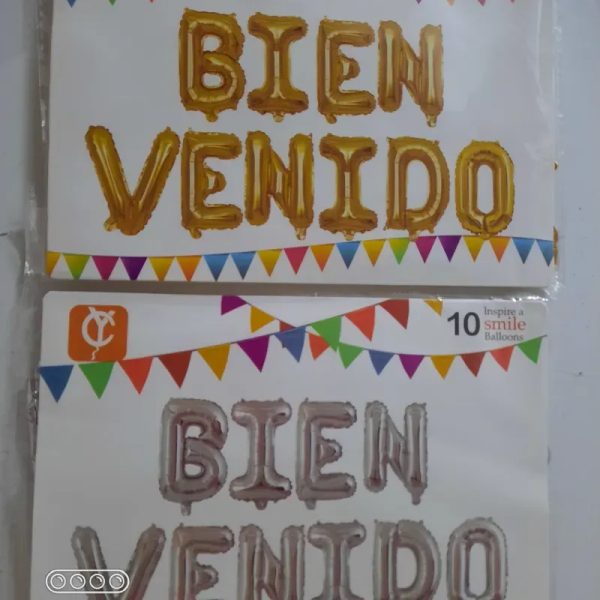 BIEN
VENIDO
10 Inspire a
smile
Balloons
BIEN
VENIDO